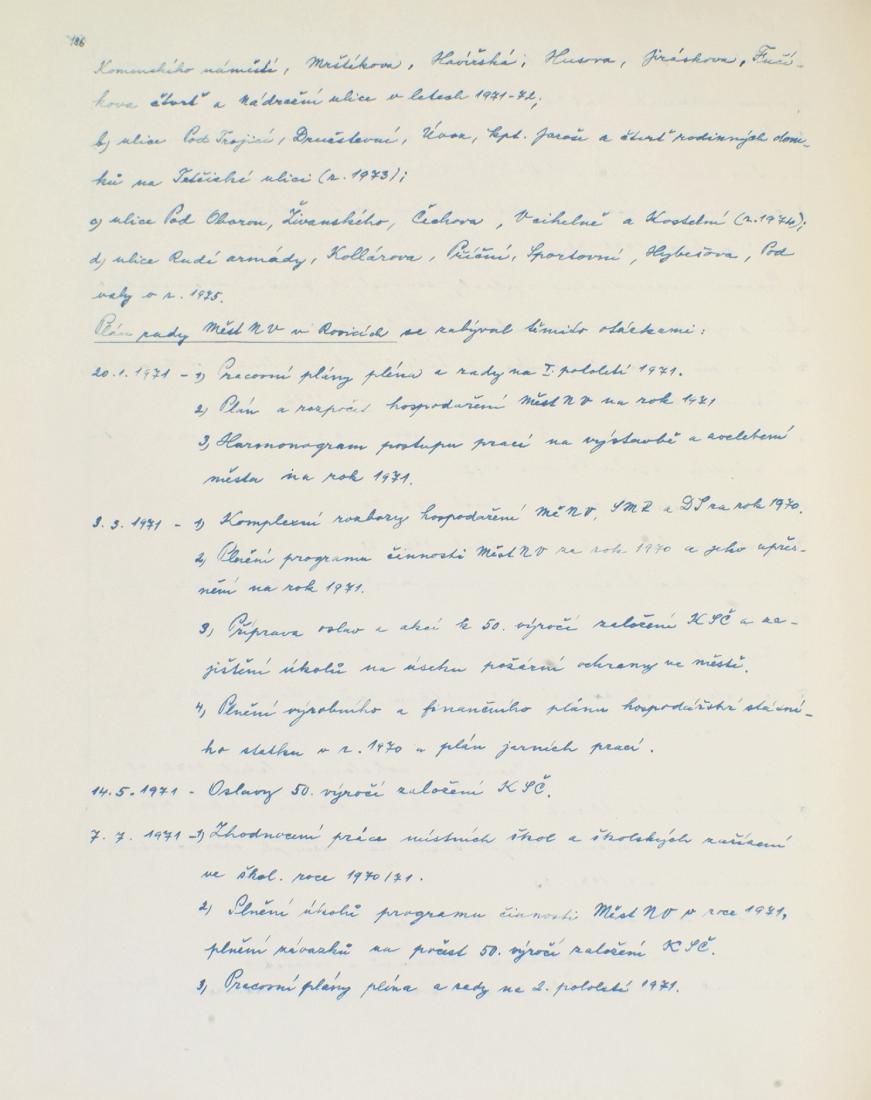 186
Komenského náměstí, Mrštíkova, Havířská, Husova, Jiráskova, Fučí-
kova čtvrť a Nádražní ulice v letech 1971-72;
b) ulice Pod Trojicí, Družstevní, Úvoz, kpt. Jaroše a čtvrť rodinných dom-
ků na Tetčické ulici (r. 1973);
c) ulice Pod Oborou, Živanského, Čechova, V cihelně a Kostelní (r. 1974);
d) ulice Rudé armády, Kollárova, Příční, Sportovní, Hybešova, Pod
valy v r. 1975.
Plán rady Měst NV v Rosicích se zabýval těmito otázkami:
20.1.1971 - 1) Pracovní plány pléna a rady na I. pololetí 1971.
2) Plán a rozpočet hospodaření Měst NV na rok 1971
3) Harmonogram postupu prací na výstavbě a zvelebení
města na rok 1971.
3.3.1971 - 1) Komplexní rozbory hospodaření Mě NV, SMR a DS za rok 1970.
2) Plnění programu činnosti Měst NV za rok 1970 a jeho upřes-
nění na rok 1971.
3) Příprava oslav a akcí k 50. výročí založení KSČ a za-
jištění úkolů na úseku požární ochrany ve městě.
4) Plnění výrobního a finančního plánu hospodářství státní-
ho statku v r. 1970 a plán jarních prací.
14.5.1971 - Oslavy 50. výročí založení KSČ.
7.7.1971 - 1) Zhodnocení práce místních škol a školských zařízení
ve škol. roce 1970/71.
2) Plnění úkolů programu činnosti Měst NV v roce 1971,
plnění závazků na počest 50. výročí založení KSČ.
3) Pracovní plány pléna a rady na 2. pololetí 1971.